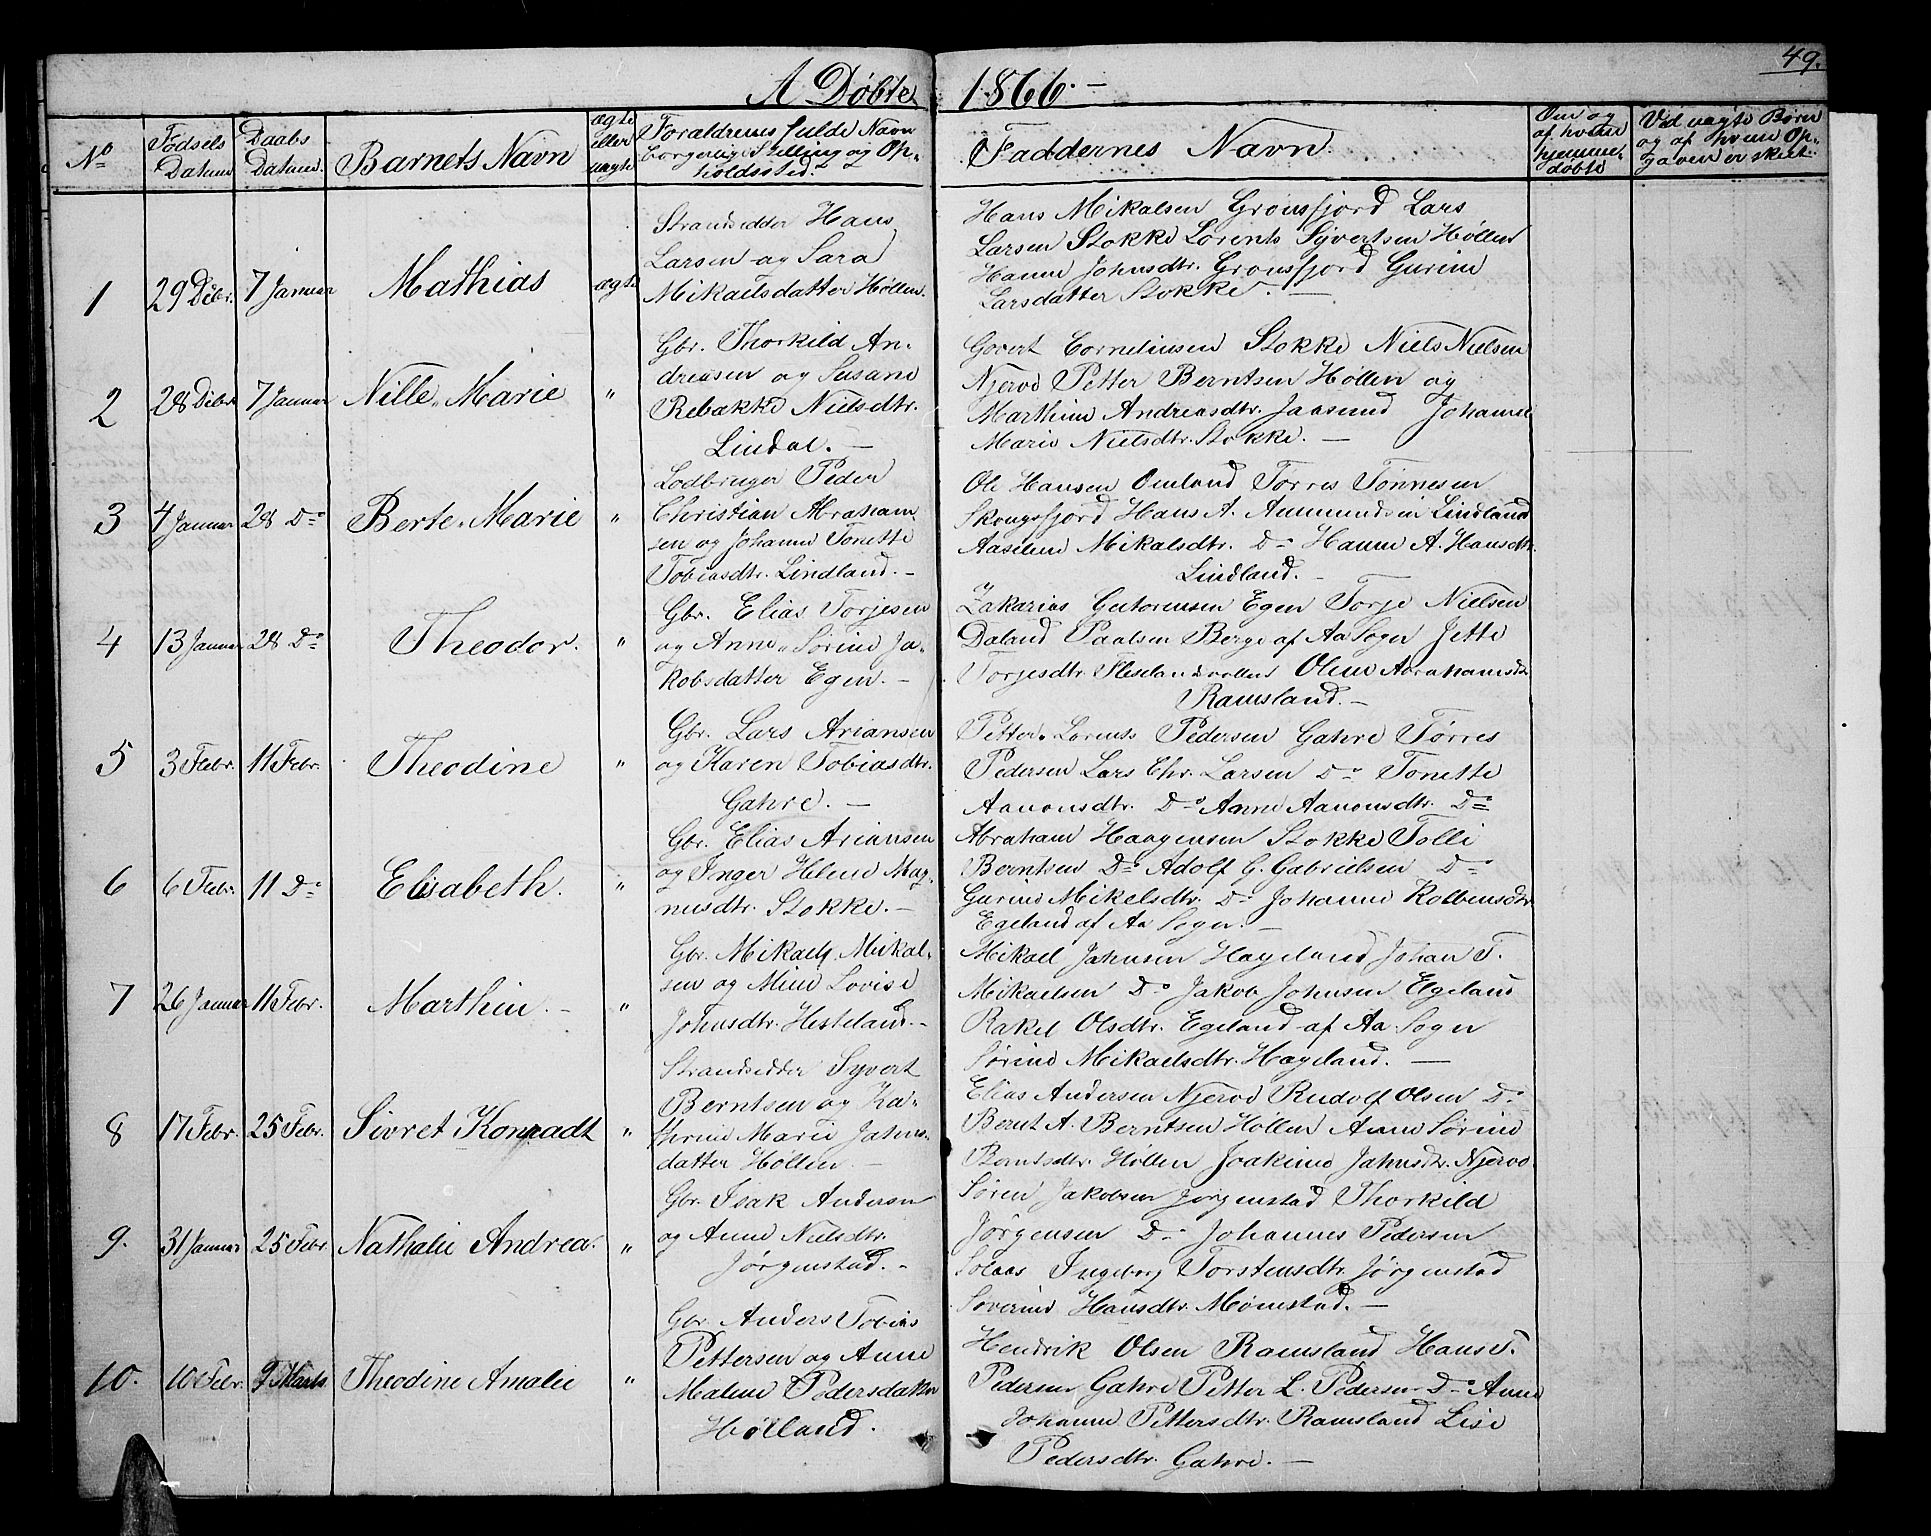 49.
A Døbte 1866. –
No
Fødsels Datum
Daabs Datum.
Barnets Navn
ægte eller uægte
Forældrenes fulde Navn borgerlige Stilling og Opholdssted.
Faddernes Navn.
Om og af hvem hjemmedøbte
Ved uægte Børn og af hvem Opgaven er skeet.
1
29 Debr.
7 Januar
Mathias
ægte
Strandsidder Hans
Larsen og Sara
Mikaelsdatter Høllen.
Hans Mikalsen Grønsfjord Lars
Larsen Stokke Lorents Syvertsen Høllen
Hanne Johnsdtr. Grønsfjord Gurine
Larsdatter Stokke. –
2
28 Debr
7 Januar
Nille Marie
"
Gbr. Thorkild An-
dreasen og Susane
Rebakke Nielsdtr.
Lindal. –
Govert Corneliusen Stokke Niels Nielsen
Njerve Petter Berntsen Høllen og
Marthine Andreasdtr. Jaasund Johanne
Marie Nielsdtr. Stokke. –
3
4 Januar
28 Do
Berte Marie
"
Lodbruger Peder
Christian Abraham-
sen og Johanne Tonette
Tobiasdtr. Lindland. –
Ole Hansen Omland Torres Tønnesen
Skongsfjord Hans A. Aunmundsen Lindland
Aaselene Mikalsdtr. Do Hanne A. Hansdtr.
Lindland. –
4
13 Januar
28 Do
Theodor.
"
Gbr. Elias Torjesen
og Anne Sørine Ja-
kobsdatter Egen. –
Zakarias Gutormsen Egen Torje Nielsen
Daland Paalsen Berge af Aa Sogn Jette
Torjesdtr. Oline Abrahamsdtr
Ramsland. –
5
3 Febr.
11 Febr.
Theodine
"
Gbr. Lars Ariansen
og Karen Tobiasdtr.
Gahre. –
Petter Lorents Pedersen Gahre Tørres
Pedersen Lars Chr. Larsen Do Tonette
Aanonsdtr. Do Anne Aanonsdtr. Do
6
6 Febr.
11 Do
Elisabeth.
"
Gbr. Elias Ariansen
og Inger Helene Mag-
nusdtr. Stokke. –
Abraham Haagensen Stokke Tolli
Berntsen Do Adolf G. Gabrielsen Do
Gurine Mikelsdtr. Do Johanne Kolbensdtr.
Egeland af Aa Sogn. –
7
26 Januar
11 Febr.
Marthin. –
"
Gbr. Mikael Mikal-
sen og Mine Lovise
Johnsdtr. Hesteland. –
Mikael Jahnsen Hageland Johan T.
Mikaelsen Do Jakob Johnsen Egeland
Rakel Olsdtr. Egeland af Aa Sogn
Sørine Mikaelsdtr. Hageland. –
8
17 Febr.
25 Febr.
Sivret Konradt
"
Strandsidder Syvert
Berntsen og Ka-
thrine Marie Jahns-
datter Høllen. –
Elias Andersen Njerve Rudolf Olsen Do
Bernt A. Berntsen Høllen Anne Sørine
Berntsdtr. Høllen Joakime Jahnsdtr. Njerve
9.
31 Januar
25 Febr
Nathalie Andrea.
"
Gbr. Isak Andersen
og Anne Nielsdtr.
Jørgenstad. –
Søren Jakobsen Jørgenstad Thorkild
Jørgensen Do Johannes Pedersen
Solaas Ingeborg Torstensdtr. Jørgenstad
Soverine Hansdtr. Mømstad. –
10.
10 Febr.
9 Marts
Theodine Amalie
"
Gbr. Anders Tobias
Pettersen og Anne
Malene Pedersdatter
Hølland.
Hendrik Olsen Ramsland Hans T.
Pedersen Gahre Petter L. Pedersen Do Anne
Johanne Pettersdtr. Ramsland Lise
Pedersdtr. Gahre. –